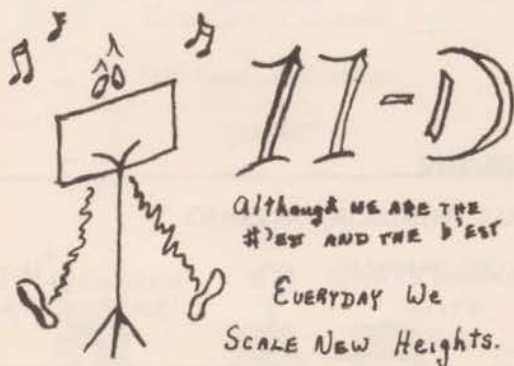 11-D
Although WE ARE THE
#'EST AND THE b'EST
EVERYDAY We
SCALE NEW Heights.